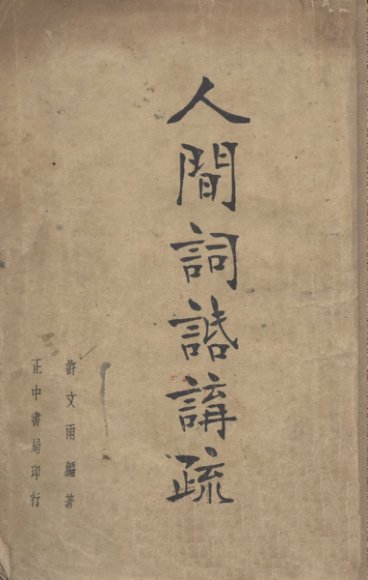 人間詞話講疏
許文雨編著
正中書局印行